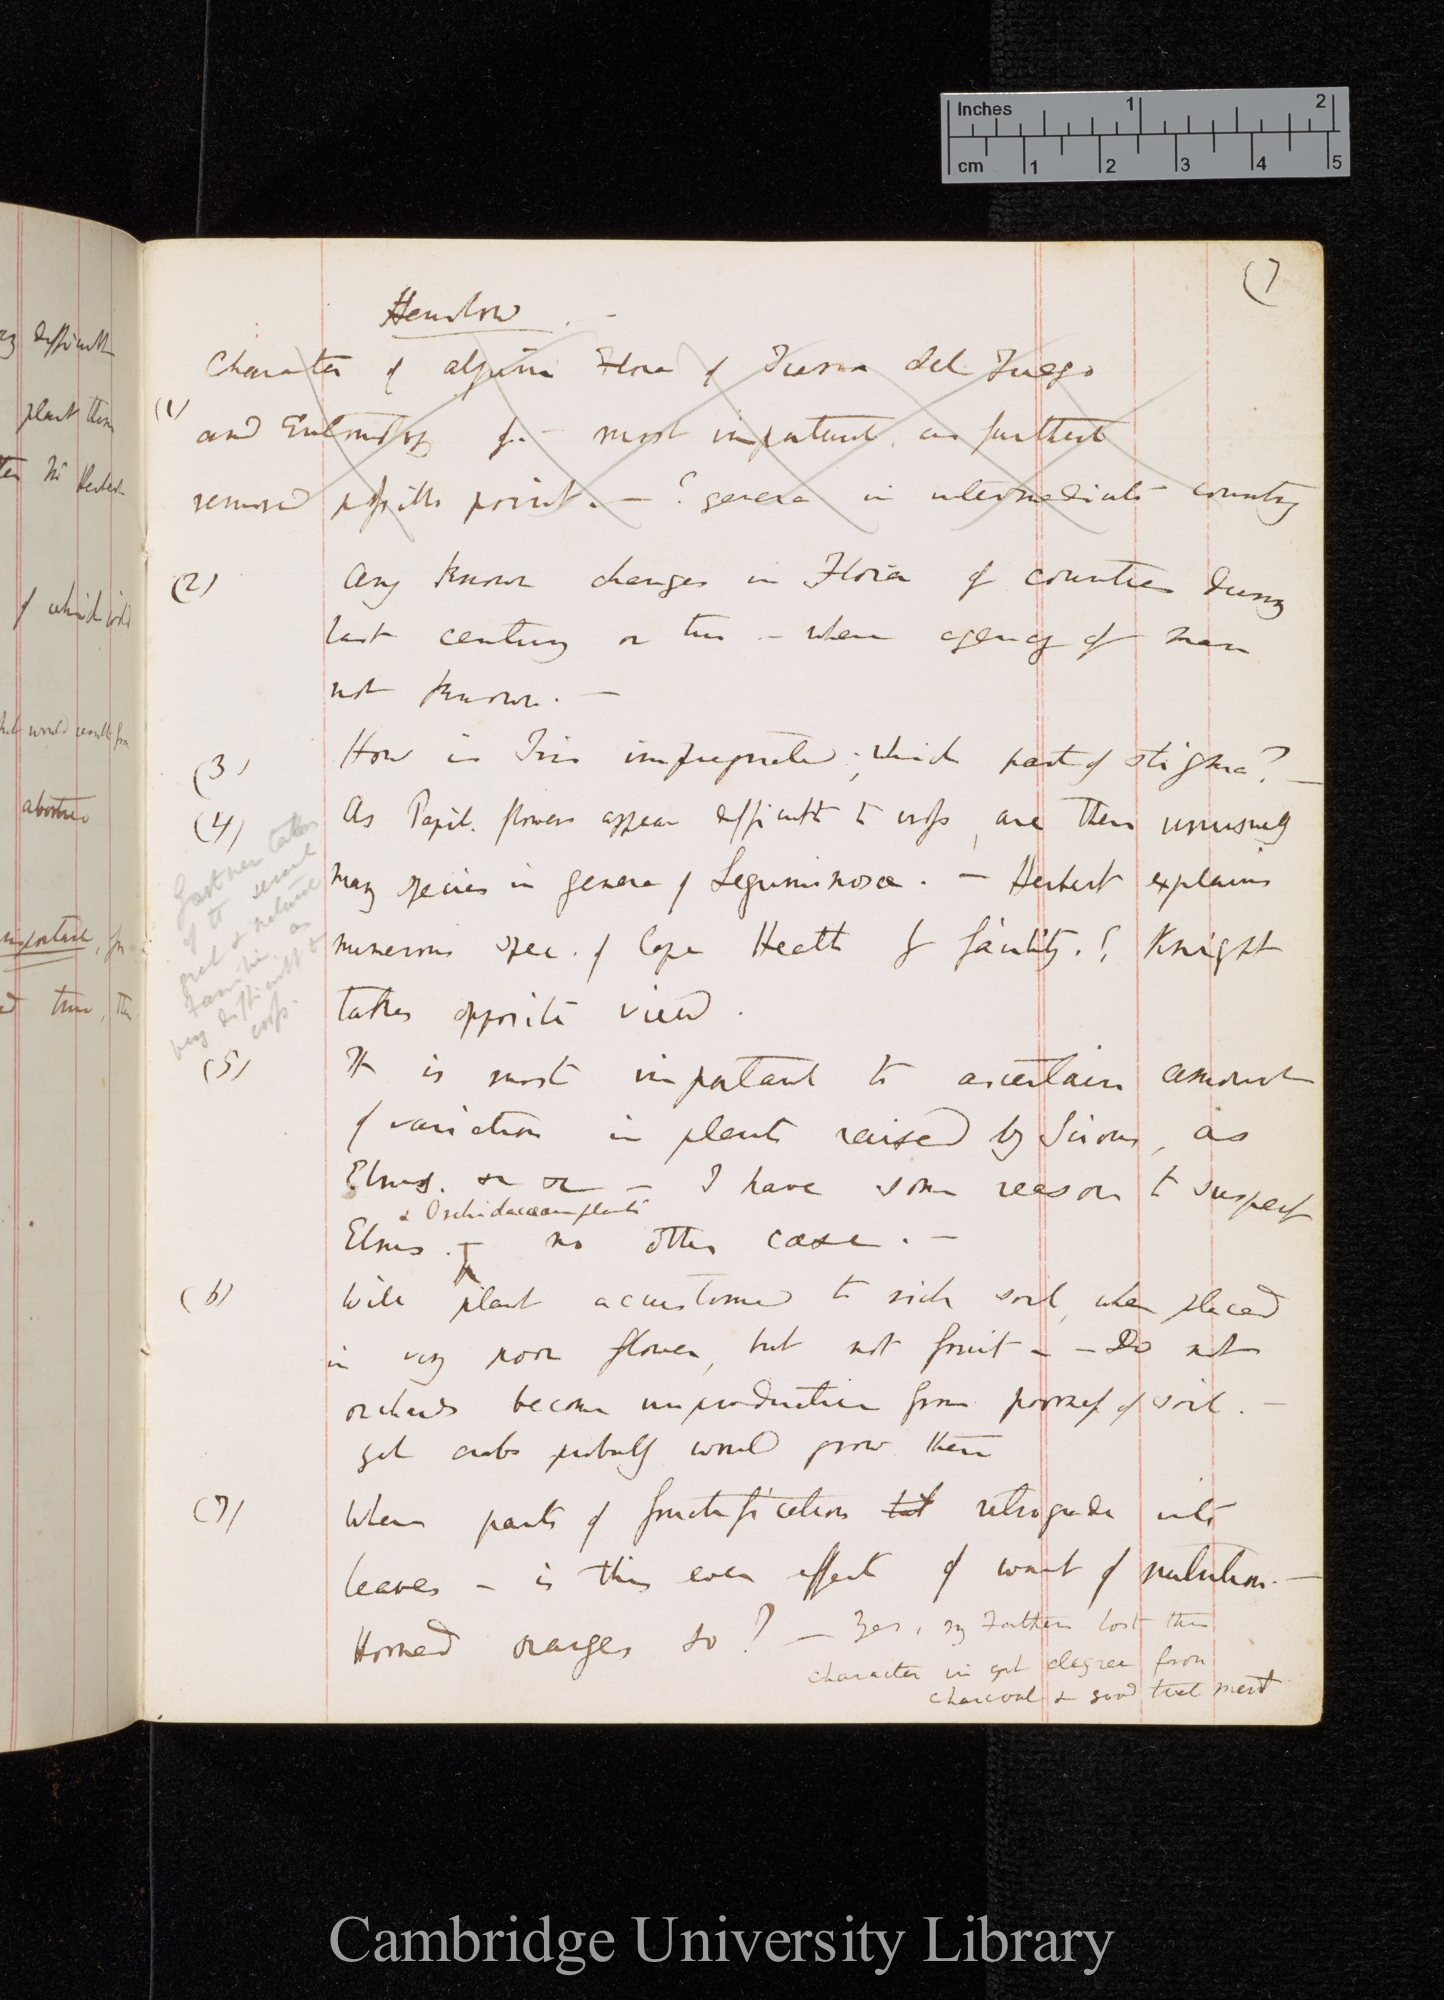 Inches 1 2
cm 1 2 3 4 5
(7
Henslow. —
Character of alpine Flora of Tierra del Fuego
(1)
and Entomology for — most important, as furthest
removed possible point. — ? genera in intermediate country
(2) Any known changes in Flora of countries during
last century or two — when agency of man
not known. —
(3) How is Iris impregnated; which part of stigma? —
(4) As Papil. flowers appear difficult to cross, are there unusually
many species in genera of Leguminosæ. — Herbert explains
numerous spec. of Cape Heath by facility.? Knight
takes opposite view.
Gærtner talks
of the several
great & natural
Families as
very difficult to
cross.
(5) It is most important to ascertain amount
of variation in plants raised by Sions, as
Elms. &c &c — I have some reason to suspect
& Orchidaceous plants
Elms. — no other case. —
(6) Will plant accustomed to rich soil, when placed
in very poor flower, but not fruit — — Do not
orchards become unproductive from poorness of soil. —
yet crabs probably would grow there
(7) When parts of fructification retrograde into
leaves — is this ever effect of want of nutrition. —
Horned oranges so? — Yes, my Father's lost this
character in grt degree from
charcoal & good treatment
difficult
plant them
Mr Herbert
of which
would result from
abortive
important, for
true, the
Cambridge University Library